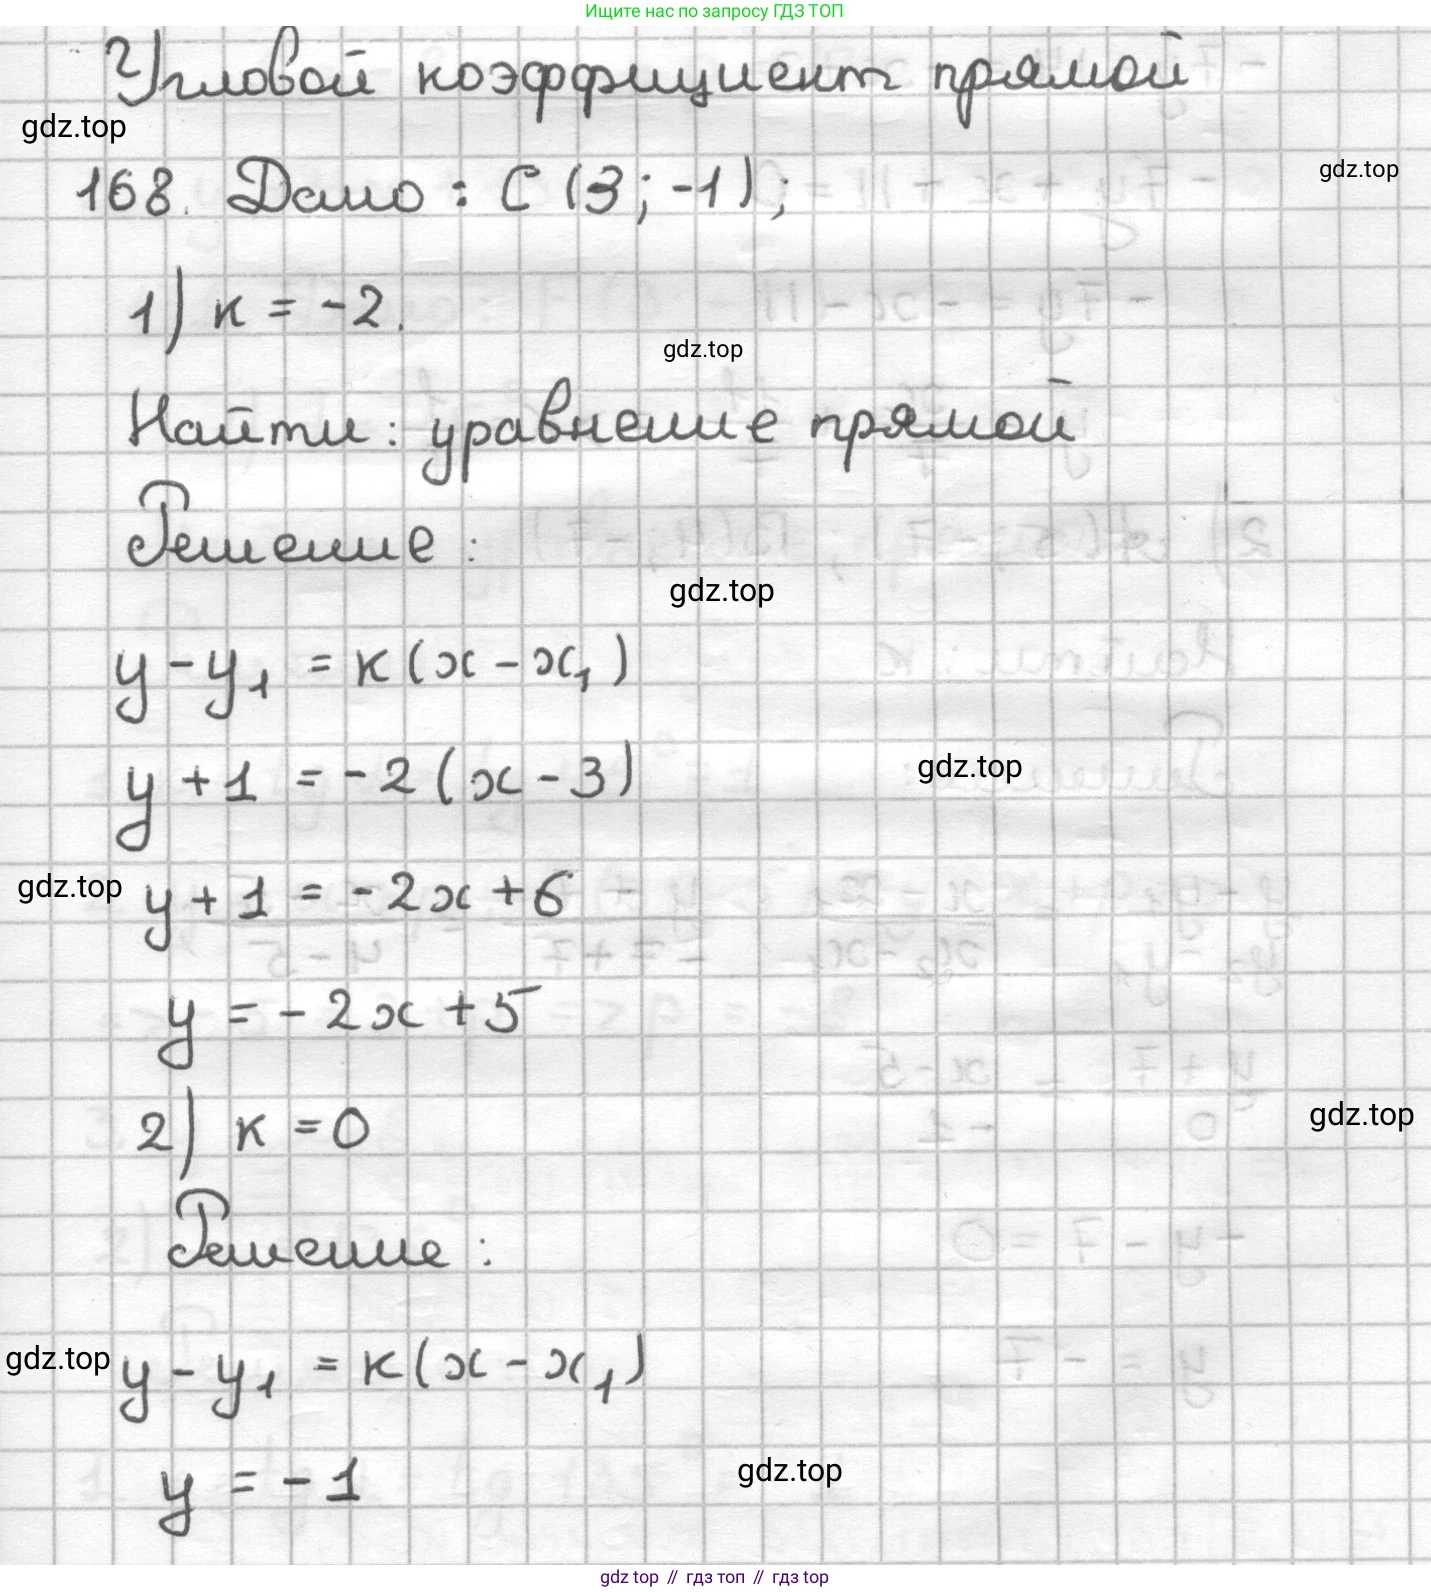 Ищите нас по запросу ГДЗ ТОП
Угловой коэффициент прямой
gdz.top
168. Дано: C (3; -1);
gdz.top
1) к = -2.
gdz.top
Найти: уравнение прямой
Решение:
gdz.top
y - y₁ = к (x - x₁)
y + 1 = -2 (x - 3)
gdz.top
gdz.top
y + 1 = -2x + 6
y = -2x + 5
2) к = 0
gdz.top
Решение:
gdz.top
y - y₁ = к (x - x₁)
y = -1
gdz.top
gdz top // гдз топ // гдз top